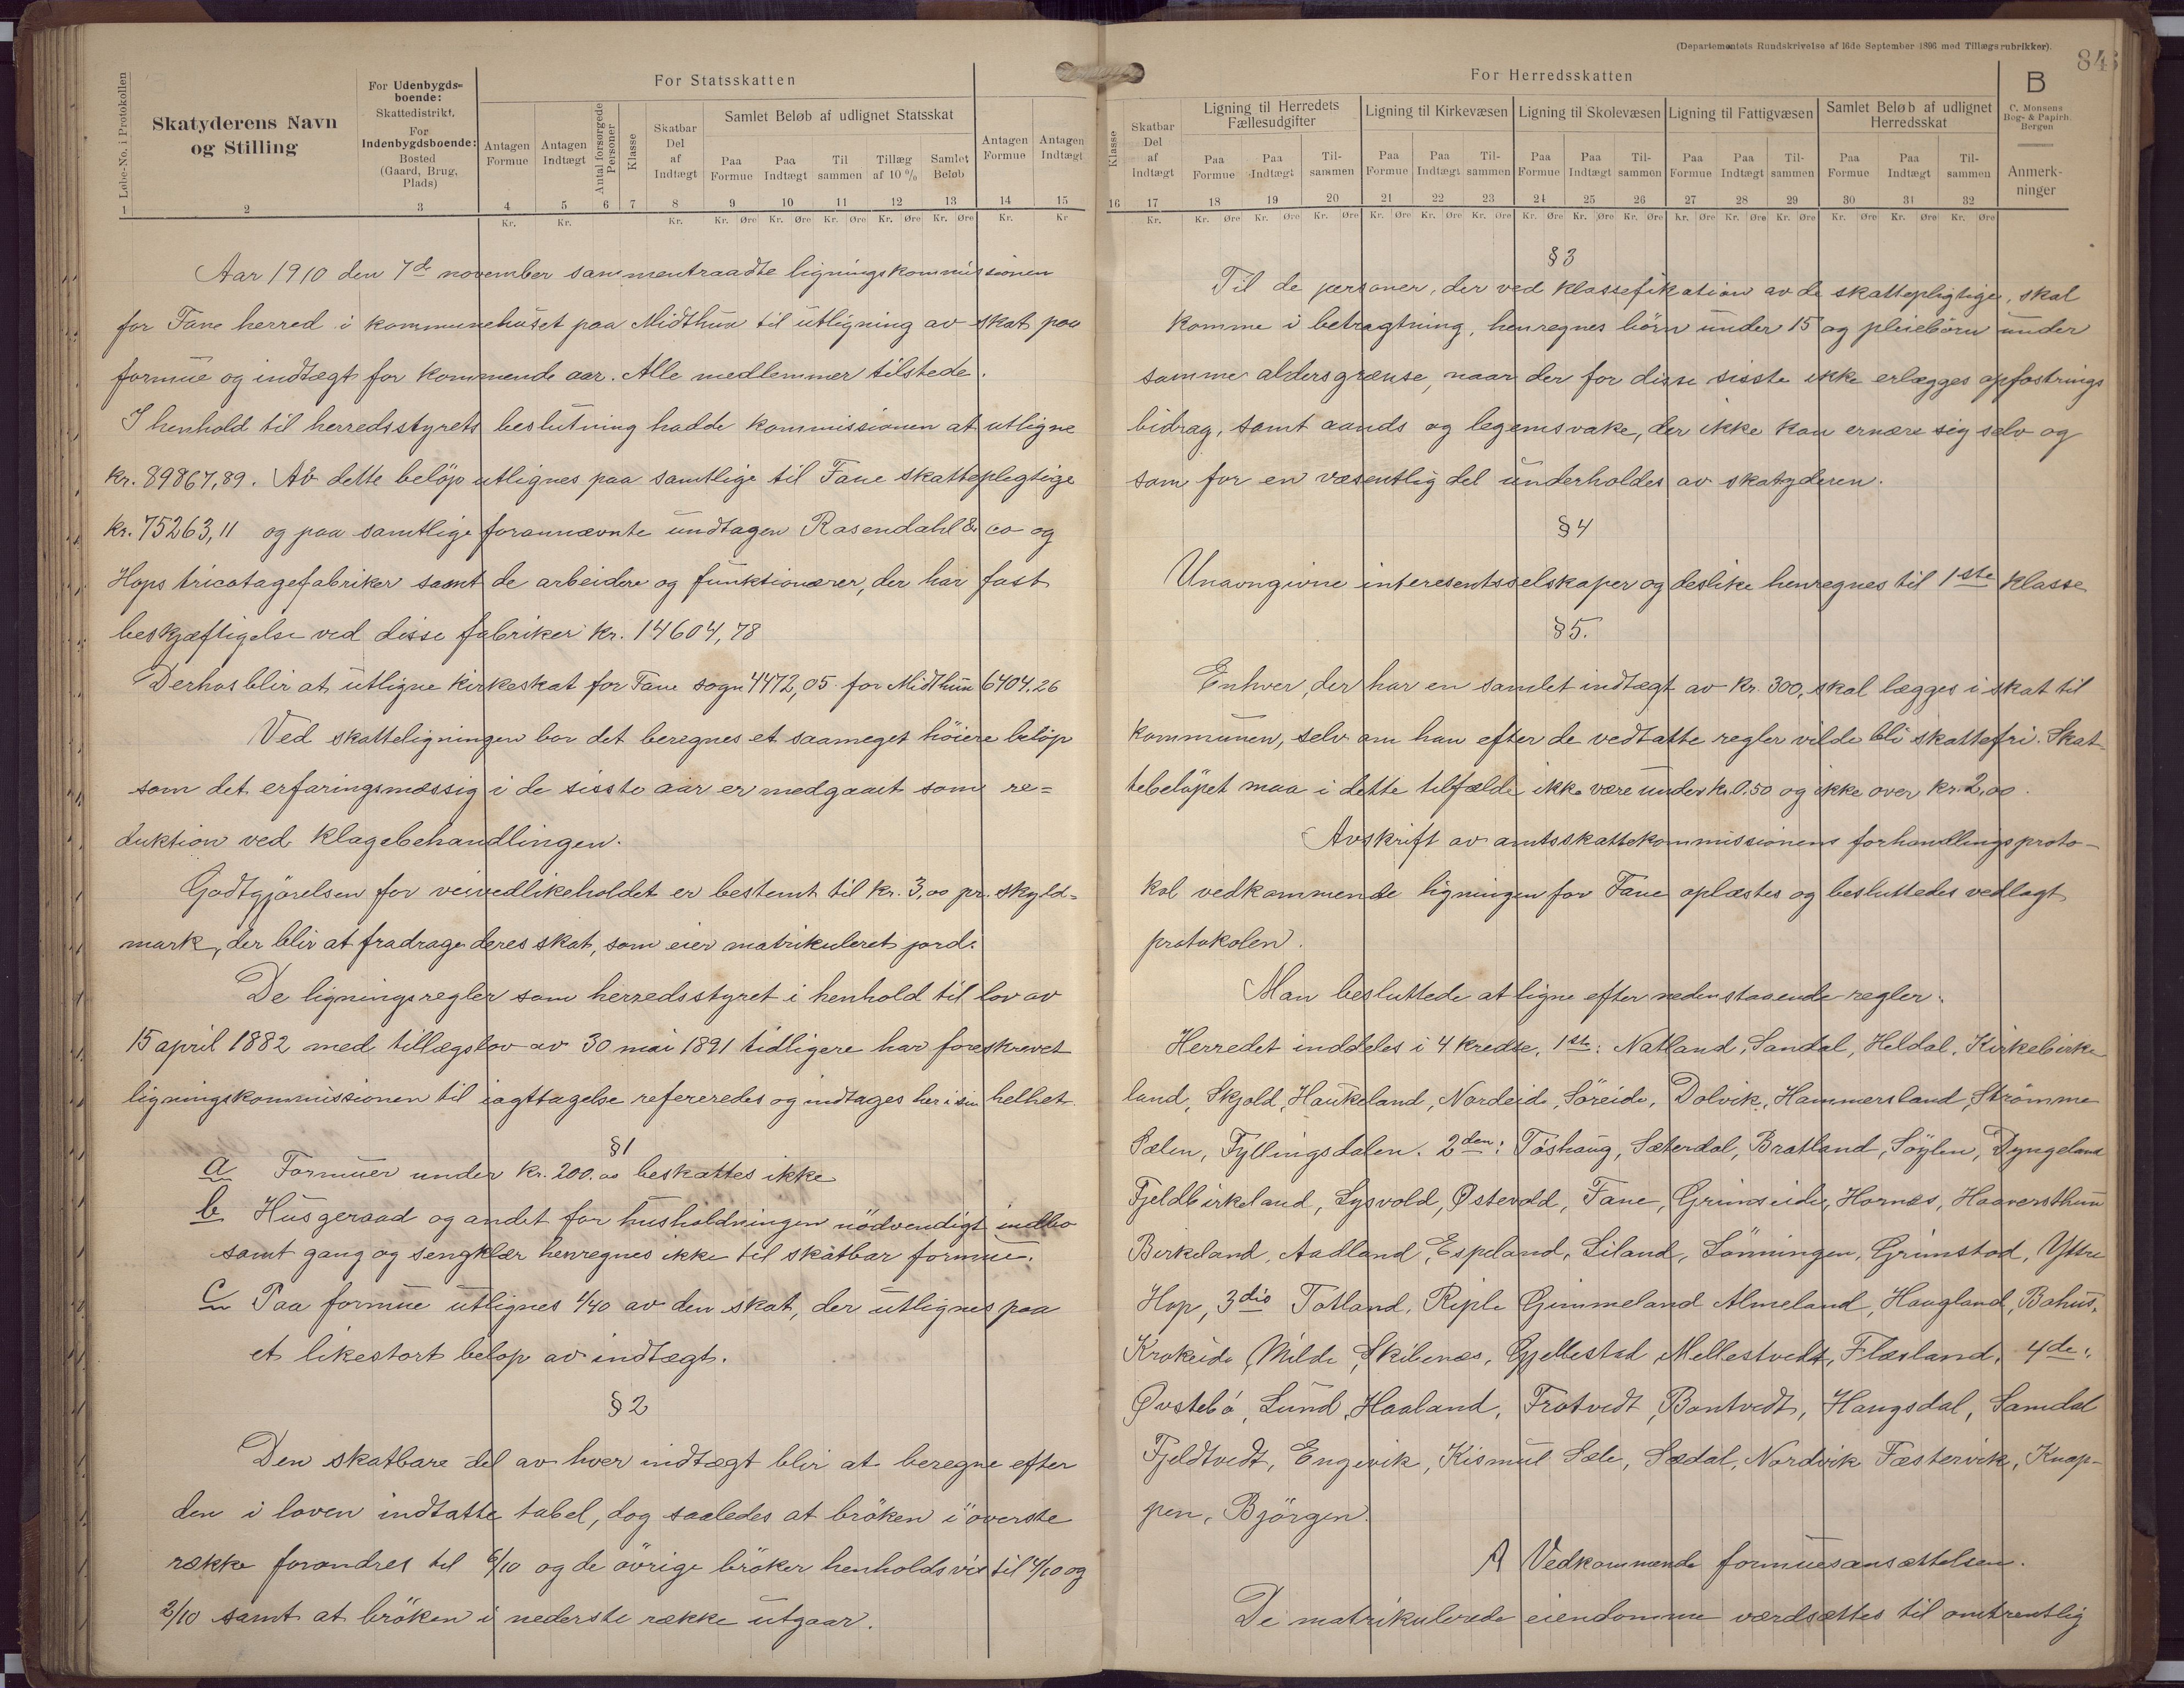 (Departementets Rundskrivelse af 16de September 1896 med Tillægsrubrikker).
84
Løbe-No. i Protokollen
Skatyderens Navn
og Stilling
For Udenbygds-
boende:
Skattedistrikt.
For
Indenbygdsboende:
Bosted
(Gaard, Brug,
Plads)
For Statsskatten
Antagen
Formue
Antagen
Indtægt
Antal forsørgede
Personer
Klasse
Skatbar
Del
af
Indtægt
Samlet Beløb af udlignet Statsskat
Paa
Formue
Paa
Indtægt
Til
sammen
Tillæg
af 10 %
Samlet
Beløb
Antagen
Formue
Antagen
Indtægt
1 2 3 4 5 6 7 8 9 10 11 12 13 14 15
Kr. Kr. Kr. Kr. Øre Kr. Øre Kr. Øre Kr. Øre Kr. Øre Kr. Kr
Aar 1910 den 7de november sammentraadte ligningskommissionen
for Fane herred i kommunehuset paa Midthun til utligning av skat paa
formue og indtægt for kommende aar. Alle medlemmer tilstede.
I henhold til herredsstyrets beslutning hadde kommissionen at utligne
kr. 89867,89. Av dette beløp utlignes paa samtlige til Fane skatteplegtige
kr. 75263,11 og paa samtlige forannævnte undtagen Rasendahl & co og
Hops tricotagefabriker samt de arbeidere og funktionærer, der har fast
beskjæftigelse ved disse fabriker kr. 14604,78
Derhos blir at utligne kirkeskat for Fane sogn 4472,05 for Midthun 6404.26
Ved skatteligningen bør det beregnes et saameget höiere belöp
som det erfaringsmæssig i de sisste aar er medgaaet som re=
duktion ved klagebehandlingen.
Godtgjörelsen for veivedlikeholdet er bestemt til kr. 3,00 pr. skyld=
mark, der blir at fradrage deres skat, som eier matrikuleret jord.
De ligningsregler som herredsstyret i henhold til lov av
15 april 1882 med tillægslov av 30 mai 1891 tidligere har foreskrevet
ligningskommissionen til iagttagelse refereredes og indtages her i sin helhet.
§1
a Formuer under kr. 200.00 beskattes ikke
b Husgeraad og andet for husholdningen nödvendigt indbo
samt gang og sengklær henregnes ikke til skatbar formue.
c Paa formue utlignes 1/40 av den skat, der utlignes paa
et likestort belop av indtægt.
§2
Den skatbare del av hver indtægt blir at beregne efter
den i loven indtatte tabel, dog saaledes at bröken i överste
række forandres til 6/10 og de övrige bröker henholdsvis til 4/10 og
2/10 samt at bröken i nederste række utgaar.
For Herredsskatten
Klasse
Skatbar
Del
af
Indtægt
Ligning til Herredets
Fællesudgifter
Ligning til Kirkevæsen
Ligning til Skolevæsen
Ligning til Fattigvæsen
Samlet Beløb af udlignet
Herredsskat
Paa
Formue
Paa
Indtægt
Til-
sammen
Paa
Formue
Paa
Indtægt
Til-
sammen
Paa
Formue
Paa
Indtægt
Til-
sammen
Paa
Formue
Paa
Indtægt
Til-
sammen
Paa
Formue
Paa
Indtægt
Til-
sammen
B
C. Monsens
Bog- & Papirh.
Bergen
Anmerk-
ninger
16 17 18 19 20 21 22 23 24 25 26 27 28 29 30 31 32
Kr. Kr. Øre Kr. Øre Kr. Øre Kr. Øre Kr. Øre Kr. Øre Kr. Øre Kr. Øre Kr. Øre Kr. Øre Kr. Øre Kr. Øre Kr. Øre Kr. Øre Kr. Øre
§3
Til de personer, der ved klassefikation av de skattepligtige, skal
komme i betragtning, henregnes børn under 15 og pleiebörn under
samme aldersgrænse, naar der for disse sisste ikke erlægges opfostrings
bidrag, samt aands og legemsvake, der ikke kan ernære sig selv og
som for en væsentlig del underholdes av skatyderen.
§4
Unavngivne interesentsselskaper og deslike henregnes til 1ste klasse
§5.
Enhver, der har en samlet indtægt av kr. 300, skal lægges i skat til
kommunen, selv om han efter de vedtatte regler vilde bli skattefri. Skat-
tebelöpet maa i dette tilfælde ikke være under kr. 0.50 og ikke over kr. 2,00.
Avskrift av amtsskattekommissionens forhandlingsproto-
kol vedkommende ligningen for Fane oplæstes og besluttedes vedlagt
protokolen.
Man besluttede at ligne efter nedenstaaende regler.
Herredet inddeles i 4 kredse, 1ste: Natland, Sandal, Heldal, Kirkebirke
land, Skjold, Haukeland, Nordeide, Söreide, Dolvik, Hammersland, Strömme
Sælen, Fyllingsdalen. 2den: Töshaug, Sæterdal, Bratland, Söylen, Dyngeland
Fjeldbirkeland, Lysvold, Østevold, Fane, Grimseide, Hornæs, Haaversthun
Birkeland, Aadland, Espeland, Liland, Lönningen, Grimstad, Yttre
Hop, 3die Totland, Riple Gimmeland Almeland, Haugland, Bahus,
Krokeide, Milde, Skibenæs, Gjellestad, Mellestvedt, Flesland, 4de:
Øvstebö, Lund, Haaland, Frotvedt, Bontvedt, Haugsdal, Samdal
Fjeldtvedt, Engevik, Kismul Sæle, Sædal, Nordvik Fæstervik, Knap-
pen, Björgen.
A Vedkommende formuesansættelsen.
De matrikulerede eiendomme værdsættes til omtrentlig